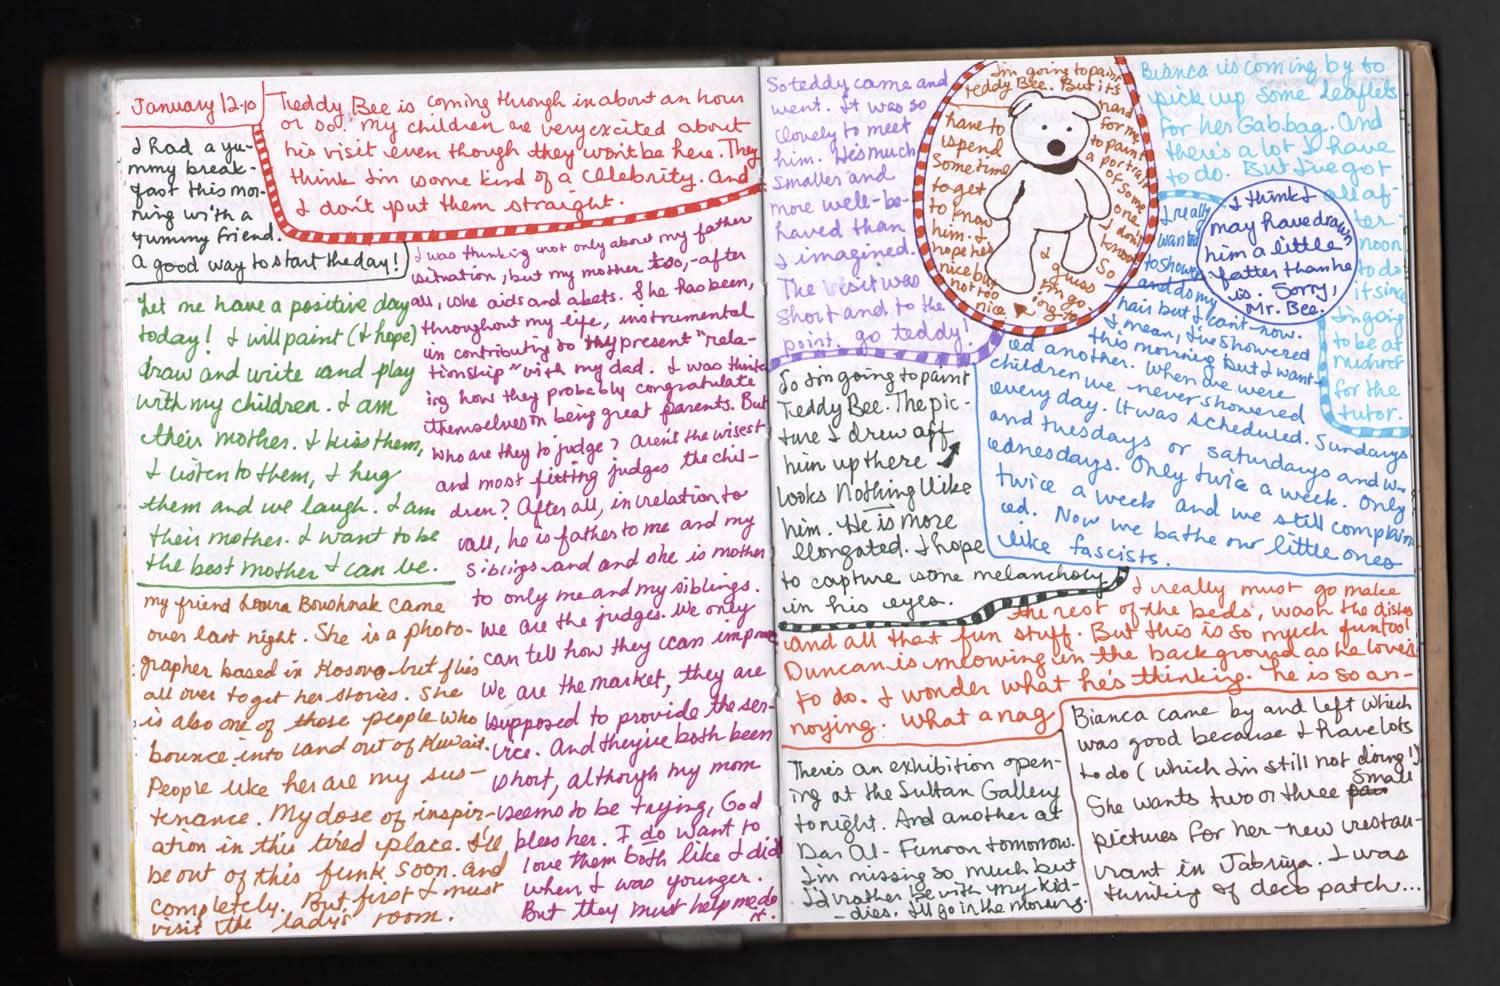 January 12-10
I had a yu-
mmy break-
fast this mor-
ning with a
yummy friend.
A good way to start the day!
Teddy Bee is coming through in about an hour
or so. My children are very excited about
his visit even though they won't be here. They
think I'm some kind of a celebrity. And
I don't put them straight.
Let me have a positive day
today! I will paint (I hope)
draw and write and play
with my children. I am
their mother. I kiss them,
I listen to them, I hug
them and we laugh. I am
their mother. I want to be
the best mother I can be.
I was thinking not only about my father
situation, but my mother too, -after
all, she aids and abets. She has been,
throughout my life, instrumental
in contributing to my present "rela-
tionship" with my dad. I was think-
ing how they probably congratulate
themselves on being great parents. But
who are they to judge? Aren't the wisest
and most fitting judges the chil-
dren? After all, in relation to
us all, he is father to me and my
siblings and and she is mother
to only me and my siblings.
We are the judges. We only
can tell how they can improve
We are the market, they are
supposed to provide the ser-
vice. And they've both been
short, although my mom
seems to be trying, God
bless her. I do want to
love them both like I did
when I was younger.
But they must help me do
it.
my friend Loura Boushnak came
over last night. She is a photo-
grapher based in Kosovo but flies
all over to get her stories. She
is also one of those people who
bounce into and out of Kuwait.
People like her are my sus-
tenance. My dose of inspir-
ation in this tired place. I'll
be out of this funk soon. And
completely. But first I must
visit the lady's room.
So teddy came and
went. It was so
lovely to meet
him. He's much
smaller and
more well-be-
haved than
I imagined.
The visit was
short and to the
point. go teddy!
I'm going to paint
teddy Bee. But it's
hard
for me
to paint
a portrait
of some
one I don't
know.
So
I
guess
I'm go
ing to
have to
spend
some time
to get
to know
him. I
hope he's
nice but
not too
nice.
Bianca is coming by to
pick up some leaflets
for her Gabbag. And
there's a lot I have
to do. But I've got
all af-
ter-
noon
to do
it since
I'm going
to be at
Mishref
for the
tutor.
I think I
may have drawn
him a little
fatter than he
is. Sorry,
Mr. Bee.
So I'm going to paint
Teddy Bee. The pic-
ture I drew off
him up there
looks Nothing like
him. He is more
elongated. I hope
to capture some melancholy
in his eyes.
I really
wanted
to shower
and do my
hair but I can't now.
I mean, I've showered
this morning but I want-
ed another. When we were
children we never showered
every day. It was scheduled. Sundays
and tuesdays or saturdays and w-
ednesdays. Only twice a week. Only
twice a week and we still complain
ed. Now we bathe our little ones
like fascists.
I really must go make
the rest of the beds, wash the dishes
and all that fun stuff. But this is so much fun too!
Duncan is meowing in the background as he loves
to do. I wonder what he's thinking. he is so an-
noying. What a nag
There's an exhibition open-
ing at the Sultan Gallery
tonight. And another at
Dar Al-Funoon tomorrow.
I'm missing so much but
I'd rather be with my kid-
-dies. I'll go in the morning.
Bianca came by and left which
was good because I have lots
to do (which I'm still not doing!)
She wants two or three small
pictures for her new restau-
rant in Jabriya. I was
thinking of deco patch...